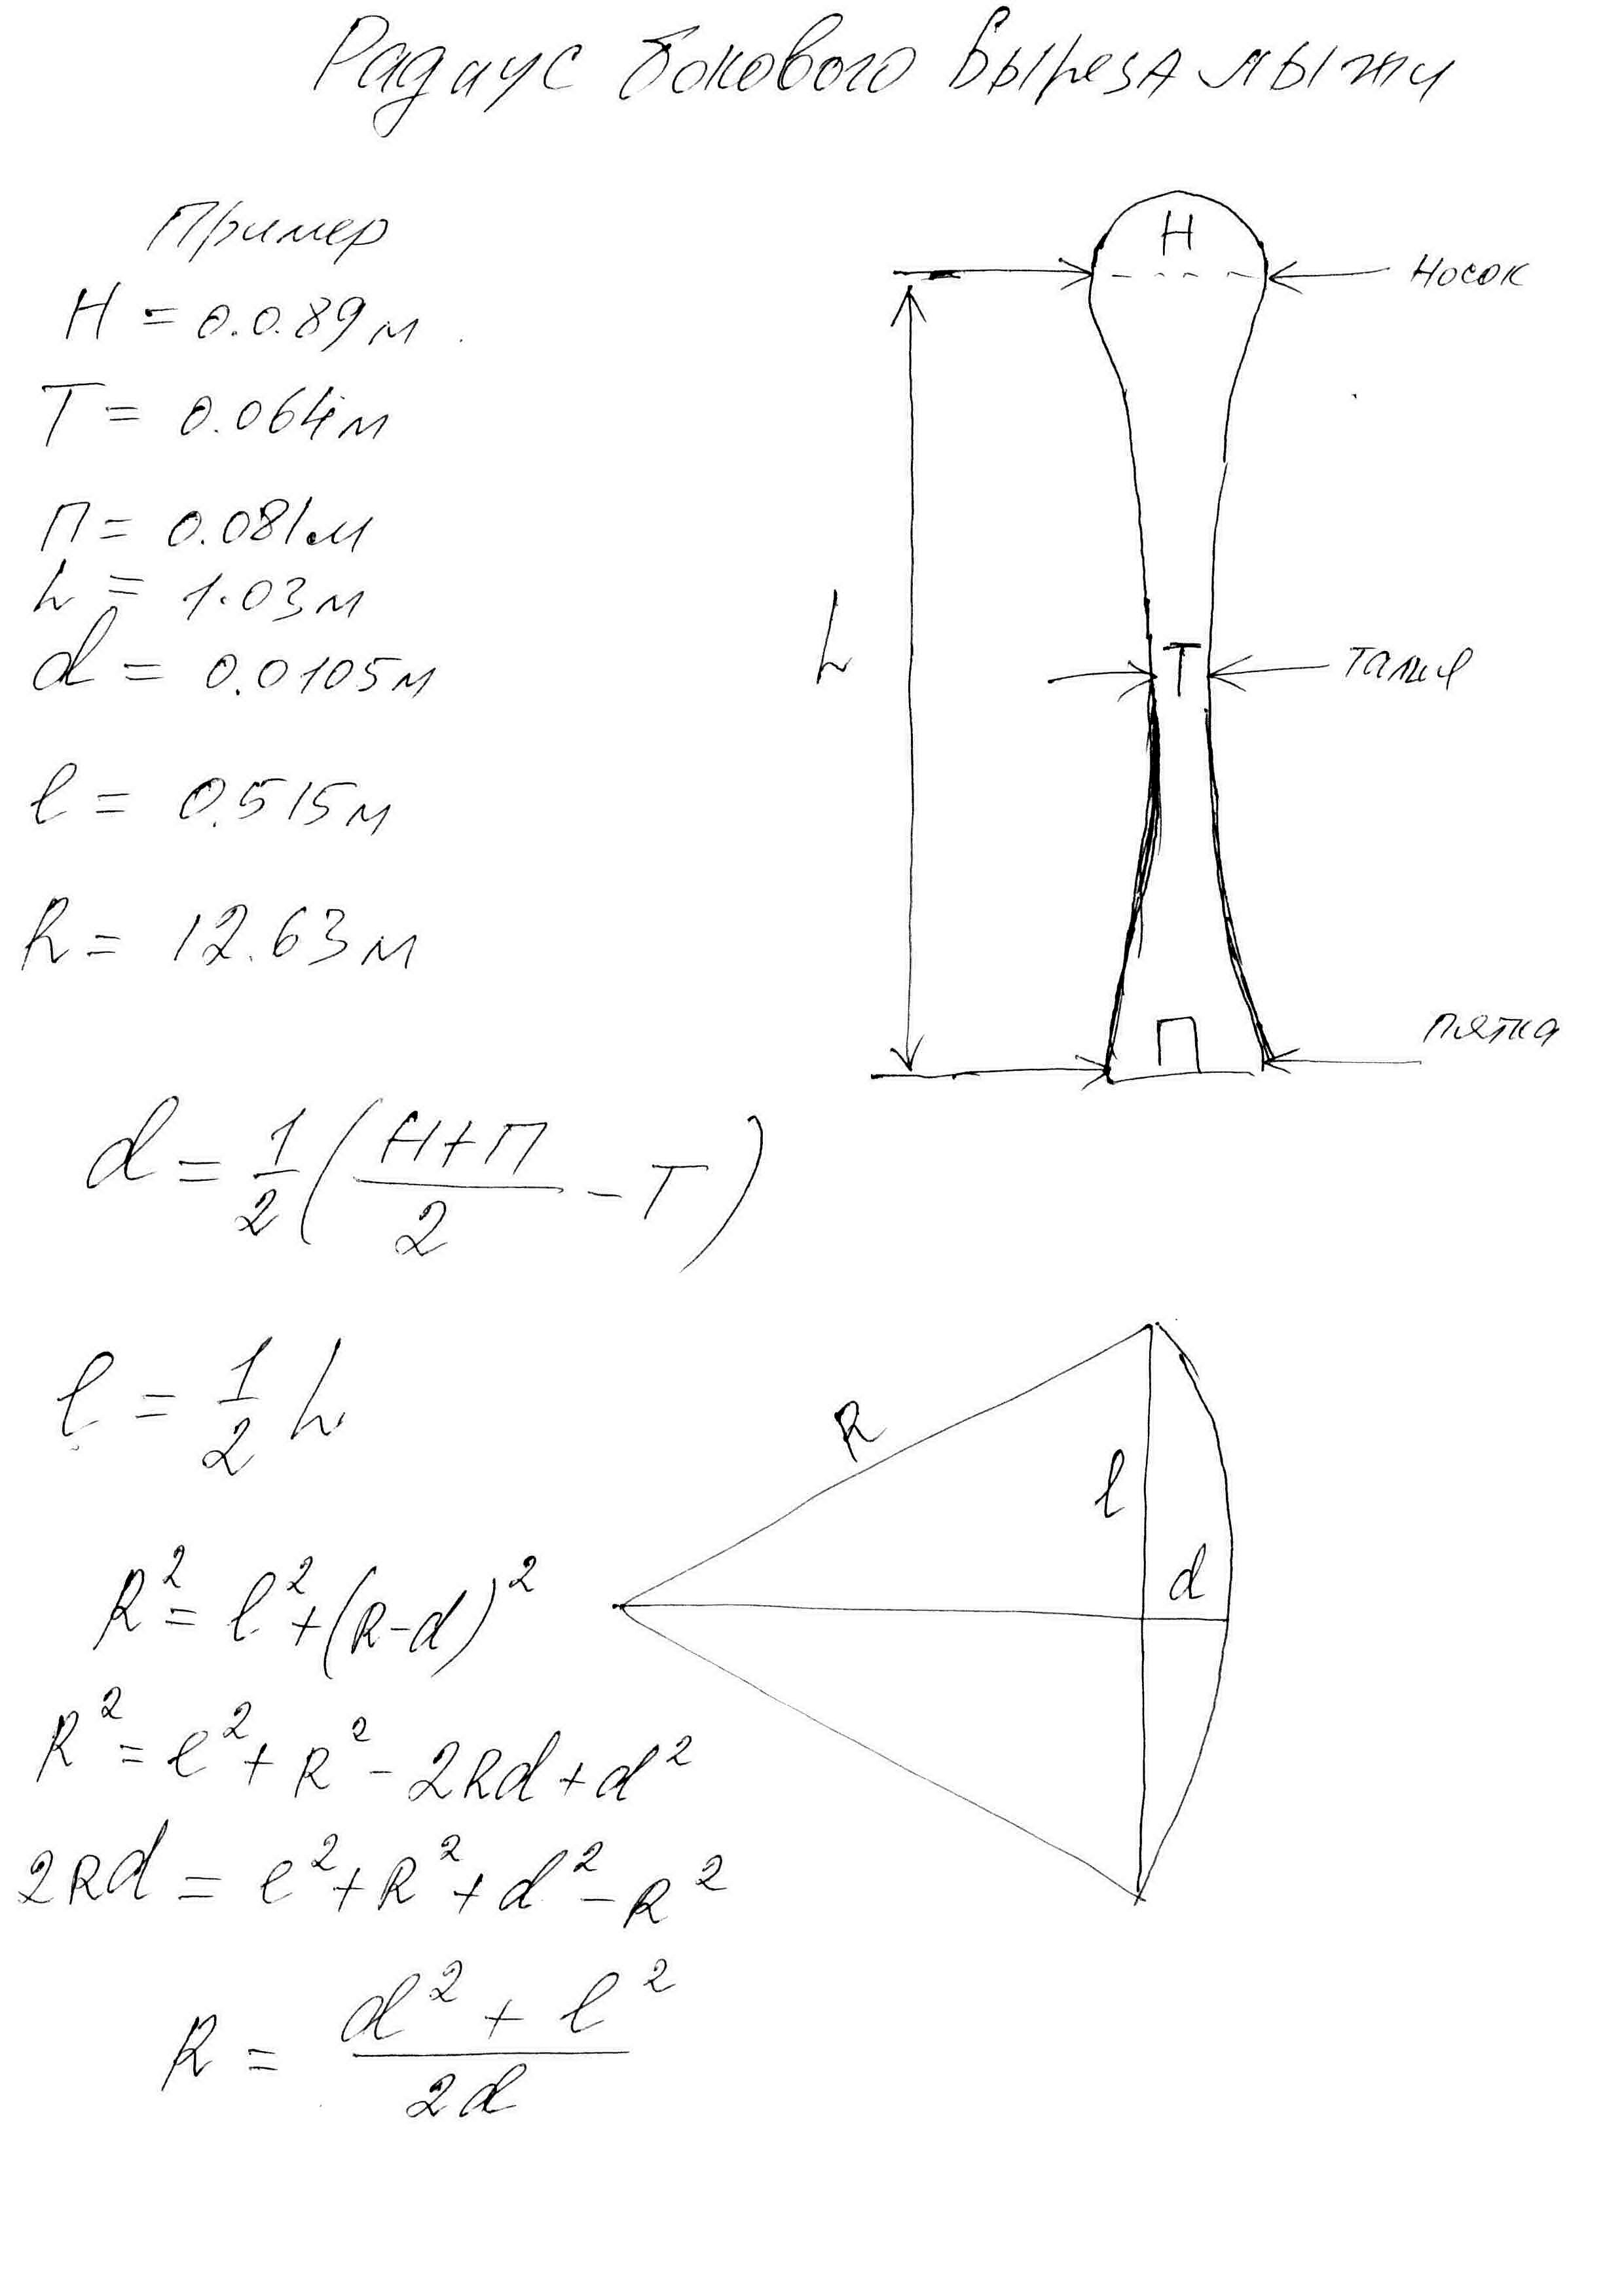 Радиус бокового выреза лыжи
Пример
H = 0.0.89м
T = 0.064м
П = 0.081м
h = 1.03м
d = 0.0105м
l = 0.515м
R = 12.63м
H
Носок
h
T
талия
П
пятка
d = 1/2 ( (H+П)/2 - T )
l = 1/2 h
R² = l² + (R-d)²
R² = l² + R² - 2Rd + d²
2Rd = l² + R² + d² - R²
R = (d² + l²)/2d
R
l
d